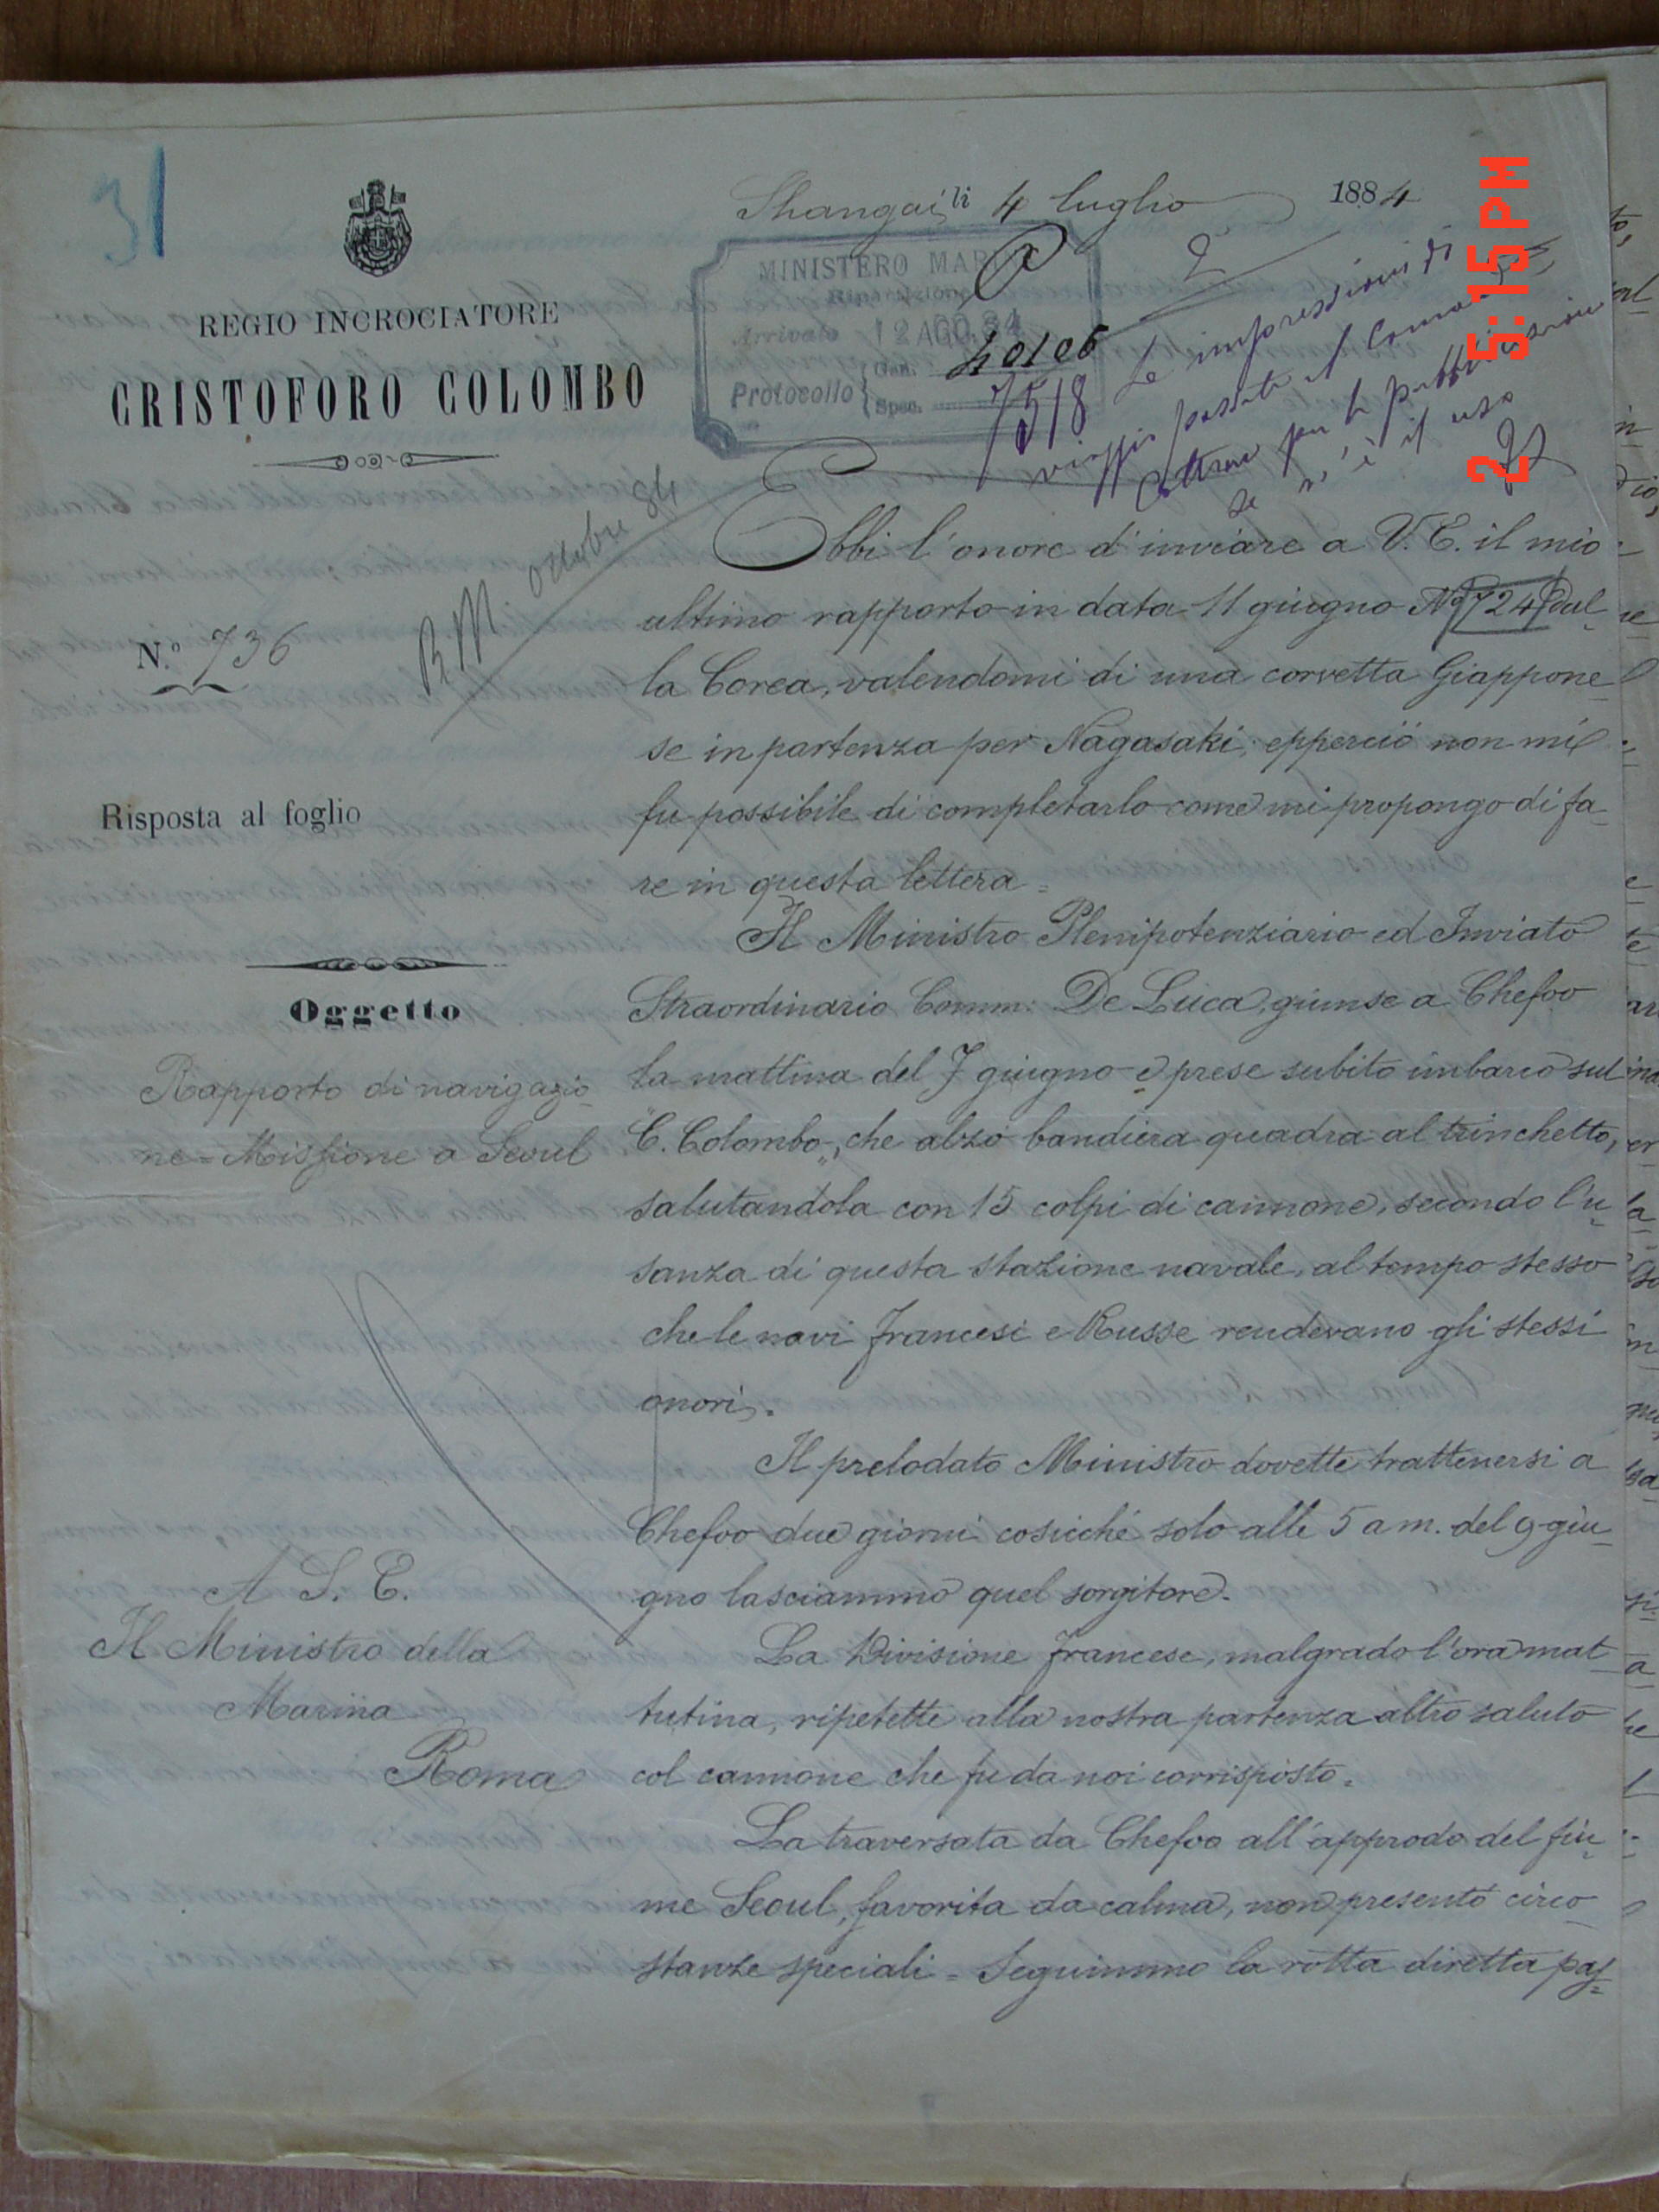 31
Shangai, li 4 luglio 1884
MINISTERO MARINA
Arrivato 12 AGO. 84
Protocollo Gen. 40106
Spec. 7518
Le impressioni di
viaggio
per la pubblicazione
se n'è il caso
2 5:15PM
REGIO INCROCIATORE
CRISTOFORO COLOMBO
RM ottobre 84
N.º 736
Risposta al foglio
Oggetto
Rapporto di navigazio-
ne = Missione a Seoul
A S. E.
Il Ministro della
Marina
Roma
Ebbi l'onore d'inviare a V. E. il mio
ultimo rapporto in data 11 giugno Nº 724 dal-
la Corea, valendomi di una corvetta Giappone-
se in partenza per Nagasaki, epperciò non mi
fu possibile di completarlo come mi propongo di fa-
re in questa lettera =
Il Ministro Plenipotenziario ed Inviato
Straordinario Comm: De Luca, giunse a Chefoo
la mattina del 7 giugno e prese subito imbarco sul
"C. Colombo", che alzò bandiera quadra al trinchetto,
salutandola con 15 colpi di cannone, secondo l'u-
sanza di questa stazione navale, al tempo stesso
che le navi Francesi e Russe rendevano gli stessi
onori =
Il prelodato Ministro dovette trattenersi a
Chefoo due giorni cosicché solo alle 5 a m. del 9 giu-
gno lasciammo quel sorgitore.
La Divisione Francese, malgrado l'ora mat-
tutina, ripetette alla nostra partenza altro saluto
col cannone che fu da noi corrisposto.
La traversata da Chefoo all'approdo del fiu-
me Seoul, favorita da calma, non presentò circo-
stanze speciali = Seguimmo la rotta diretta pas=